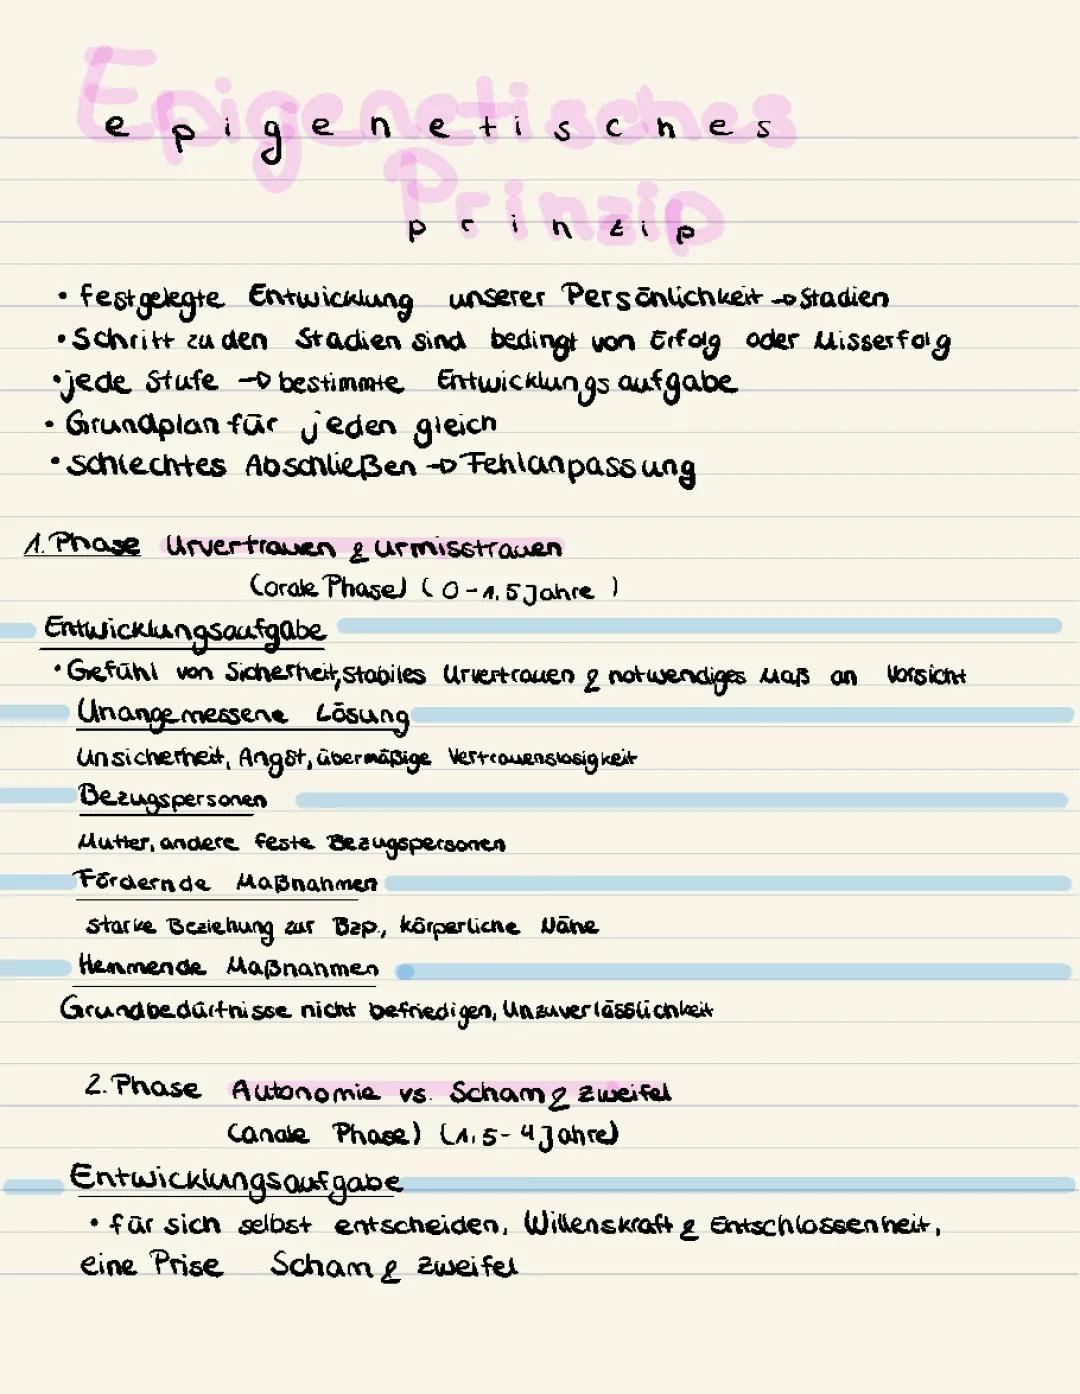 Epigenetisches
epigenetisches
Prinzip
prinzip
• festgelegte Entwicklung unserer Persönlichkeit → Stadien
• Schritt zu den Stadien sind bedingt von Erfolg oder Misserfolg
• jede Stufe → bestimmte Entwicklungsaufgabe
• Grundplan für jeden gleich
• schlechtes Abschließen → Fehlanpassung
1. Phase Urvertrauen & Urmisstrauen
(orale Phase) (0-1,5 Jahre)
Entwicklungsaufgabe
• Gefühl von Sicherheit, stabiles Urvertrauen & notwendiges Maß an Vorsicht
Unangemessene Lösung
Unsicherheit, Angst, übermäßige Vertrauenslosigkeit
Bezugspersonen
Mutter, andere feste Bezugspersonen
Fördernde Maßnahmen
starke Beziehung zur Bzp., körperliche Nähe
Hemmende Maßnahmen
Grundbedürfnisse nicht befriedigen, Unzuverlässlichkeit
2. Phase Autonomie vs. Scham & Zweifel
(anale Phase) (1,5-4 Jahre)
Entwicklungsaufgabe
• für sich selbst entscheiden, Willenskraft & Entschlossenheit,
eine Prise Scham & Zweifel